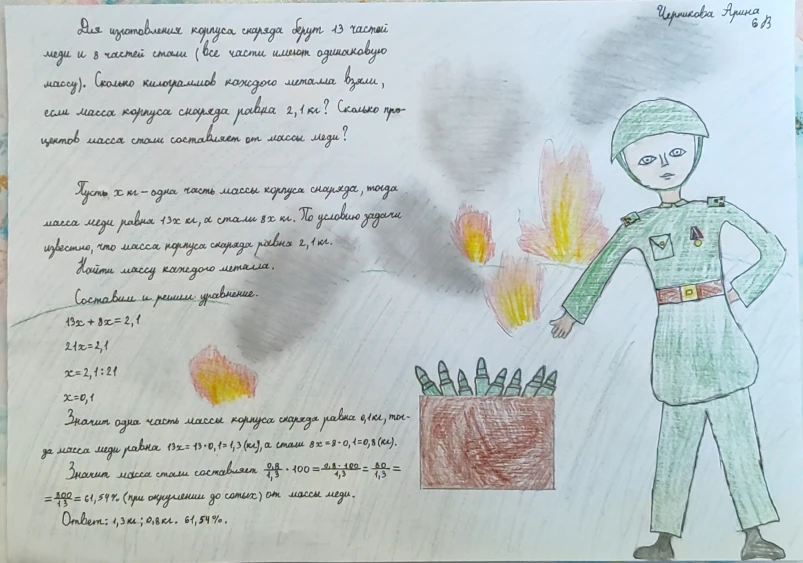 Черникова Арина
6 В
Для изготовления корпуса снаряда берут 13 частей
меди и 8 частей стали (все части имеют одинаковую
массу). Сколько килограммов каждого металла взяли,
если масса корпуса снаряда равна 2,1 кг? Сколько про-
центов масса стали составляет от массы меди?
Пусть x кг - одна часть массы корпуса снаряда, тогда
масса меди равна 13x кг, а стали 8x кг. По условию задачи
известно, что масса корпуса снаряда равна 2,1 кг.
Найти массу каждого металла.
Составим и решим уравнение.
13x + 8x = 2,1
21x = 2,1
x = 2,1 : 21
x = 0,1
Значит одна часть массы корпуса снаряда равна 0,1 кг, тог-
да масса меди равна 13x = 13 · 0,1 = 1,3 (кг), а стали 8x = 8 · 0,1 = 0,8 (кг).
Значит масса стали составляет 0,8/1,3 · 100 = 0,8 · 100/1,3 = 80/1,3 =
= 800/13 = 61,54% (при округлении до сотых) от массы меди.
Ответ: 1,3 кг; 0,8 кг. 61,54%.